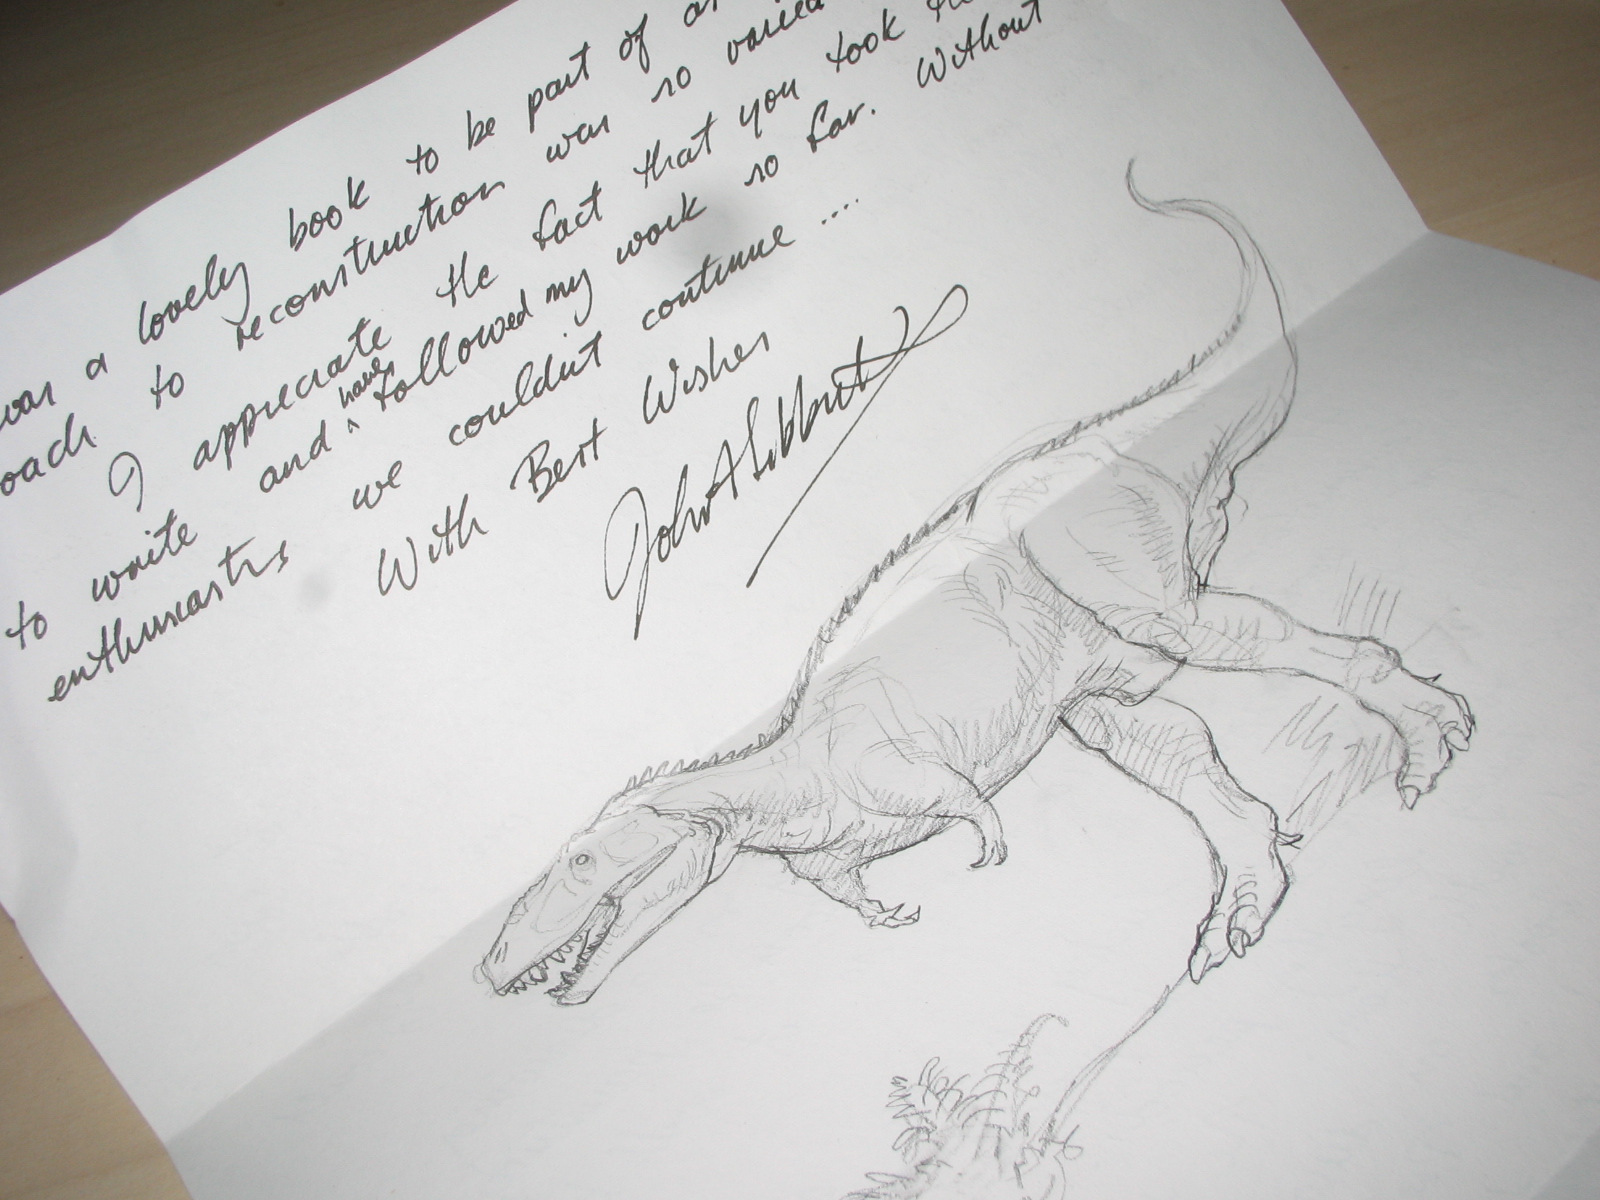 was a lovely book to be part of
to reconstruction was so varied
I appreciate the fact that you took
to write and have followed my work so far. Without
enthusiasts we couldn't continue ....
With Best Wishes
John A Sibbick